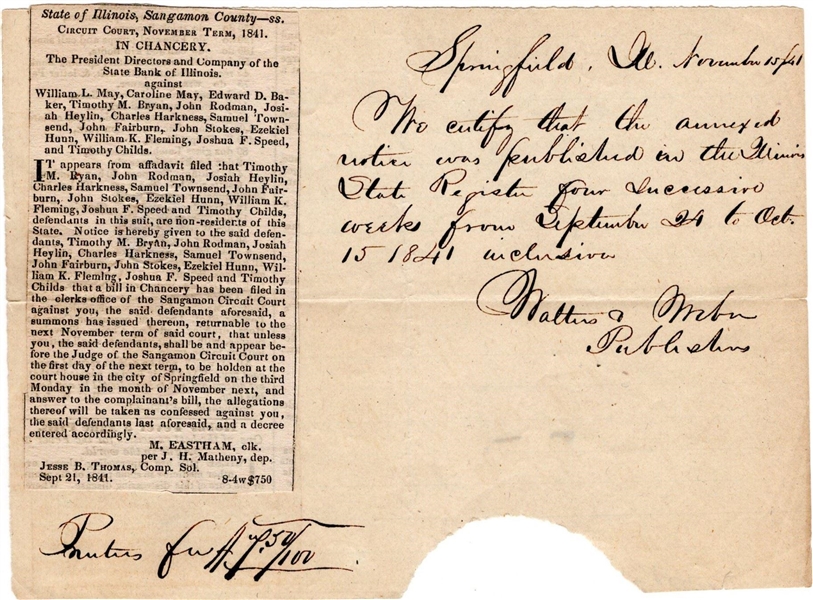 State of Illinois, Sangamon County—ss.
Circuit Court, November Term, 1841.
IN CHANCERY.
The President Directors and Company of the
State Bank of Illinois.
against
William L. May, Caroline May, Edward D. Ba-
ker, Timothy M. Bryan, John Rodman, Josi-
ah Heylin, Charles Harkness, Samuel Town-
send, John Fairburn, John Stokes, Ezekiel
Hunn, William K. Fleming, Joshua F. Speed,
and Timothy Childs.
IT appears from affadavit filed that Timothy
M. Ryan, John Rodman, Josiah Heylin,
Charles Harkness, Samuel Townsend, John Fair-
burn, John Stokes, Ezekiel Hunn, William K.
Fleming, Joshua F. Speed and Timothy Childs,
defendants in this suit, are non-residents of this
State. Notice is hereby given to the said defen-
dants, Timothy M. Bryan, John Rodman, Josiah
Heylin, Charles Harkness, Samuel Townsend,
John Fairburn, John Stokes, Ezekiel Hunn, Wil-
liam K. Fleming, Joshua F. Speed and Timothy
Childs that a bill in Chancery has been filed in
the clerks office of the Sangamon Circuit Court
against you, the said defendants aforesaid, a
summons has issued thereon, returnable to the
next November term of said court, that unless
you, the said defendants, shall be and appear be-
fore the Judge of the Sangamon Circuit Court on
the first day of the next term, to be holden at the
court house in the city of Springfield on the third
Monday in the month of November next, and
answer to the complainant's bill, the allegations
thereof will be taken as confessed against you,
the said defendants last aforesaid, and a decree
entered accordingly.
M. EASTHAM, clk.
per J. H. Matheny, dep.
Jesse B. Thomas, Comp. Sol.
Sept 21, 1841. 8-4w$750
Springfield, Ill. November 15/41
We certify that the annexed
notice was published in the Illinois
State Register four successive
weeks from September 24 to Oct.
15 1841 inclusive
Walters & Weber
Publishers
Printers fee $7.50/100